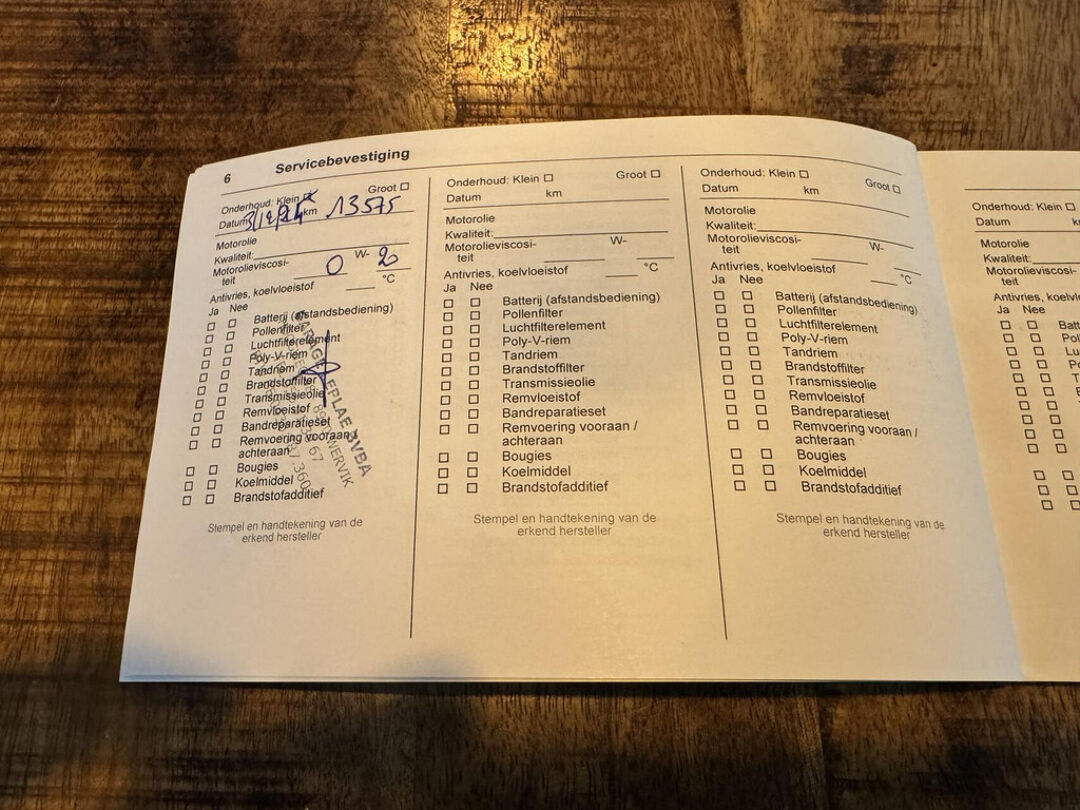 6 Servicebevestiging
Onderhoud: Klein Groot
Datum 3/12/24 km 13575
Motorolie
Kwaliteit:
Motorolieviscosi-
teit 0 W- 20
Antivries, koelvloeistof °C
Ja Nee
Batterij (afstandsbediening)
Pollenfilter
Luchtfilterelement
Poly-V-riem
Tandriem
Brandstoffilter
Transmissieolie
Remvloeistof
Bandreparatieset
Remvoering vooraan /
achteraan
Bougies
Koelmiddel
Brandstofadditief
GARAGE BVBA
WERVIK
Stempel en handtekening van de
erkend hersteller
Onderhoud: Klein Groot
Datum km
Motorolie
Kwaliteit:
Motorolieviscosi- W-
teit
Antivries, koelvloeistof °C
Ja Nee
Batterij (afstandsbediening)
Pollenfilter
Luchtfilterelement
Poly-V-riem
Tandriem
Brandstoffilter
Transmissieolie
Remvloeistof
Bandreparatieset
Remvoering vooraan /
achteraan
Bougies
Koelmiddel
Brandstofadditief
Stempel en handtekening van de
erkend hersteller
Onderhoud: Klein Groot
Datum km
Motorolie
Kwaliteit:
Motorolieviscosi- W-
teit
Antivries, koelvloeistof °C
Ja Nee
Batterij (afstandsbediening)
Pollenfilter
Luchtfilterelement
Poly-V-riem
Tandriem
Brandstoffilter
Transmissieolie
Remvloeistof
Bandreparatieset
Remvoering vooraan /
achteraan
Bougies
Koelmiddel
Brandstofadditief
Stempel en handtekening van de
erkend hersteller
Onderhoud: Klein
Datum km
Motorolie
Kwaliteit:
Motorolieviscosi-
teit
Antivries, koelvl
Ja Nee
Batt
Pol
Lu